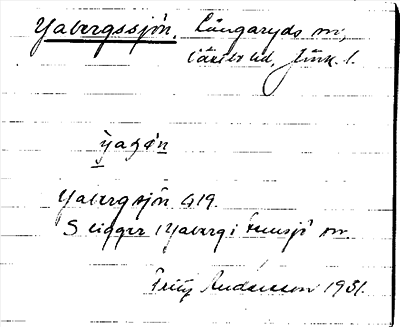 Yabergssjön. Långaryds sn,
Västbo hd, Jönk. l.
yaʒøn
Yabergsjön G19.
S ligger i Yaberg i Femsjö sn.
Fritz Andersson 1931.